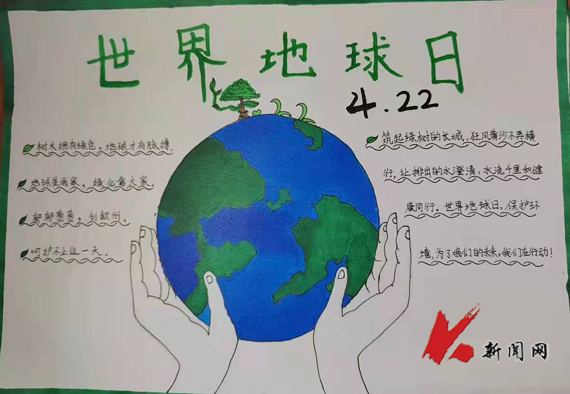 世界地球日
4.22
树木拥有绿色，地球才有脉搏
地球是我家，绿化靠大家。
郁郁葱葱，创新州。
呵护不止这一天。
筑起绿树的长城，狂风黄沙不再横
行，让排出的水澄清，水流千里和健
康同行。世界地球日，保护环
境，为了我们的未来，我们在行动！
新闻网